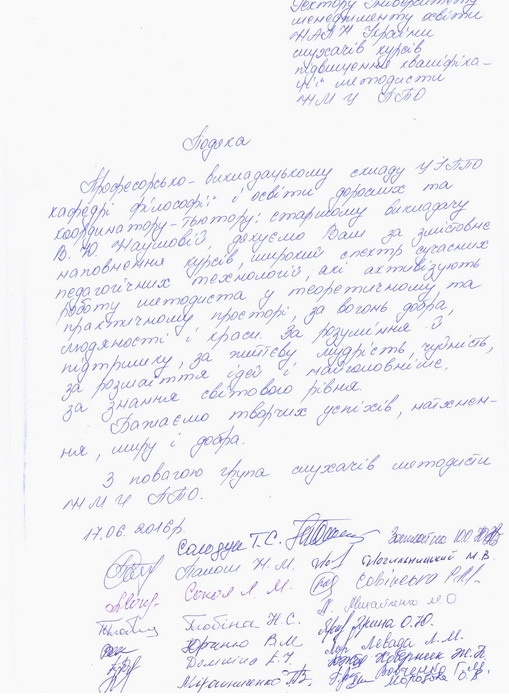 Ректору Університету
менеджменту освіти
НАПН України
слухачів курсів
підвищення кваліфіка-
ції методисти
НМЦ ППО
Подяка
Професорсько-викладацькому складу ЦІППО
кафедрі філософії і освіти дорослих та
координатору-тьютору: старшому викладачу
В. Ю. Наумовій, дякуємо Вам за змістовне
наповнення курсів, широкий спектр сучасних
педагогічних технологій, які активізують
роботу методиста у теоретичному та
практичному просторі, за вогонь добра,
людяності і краси. За розуміння й
підтримку, за життєву мудрість, чуйність,
за розмаїття ідей і найголовніше,
за знання світового рівня.
Бажаємо творчих успіхів, натхнен-
ня, миру і добра.
З повагою група слухачів методисти
НМЦ ППО.
17.06.2016р.
Солодук Т.С.
Н. М. В.
Сокол Л. М. Совінська Р.М.
М.О
Тобіна Н.С. Ю.
Юрченко В.М. Левада Л.М.
Мирошниченко